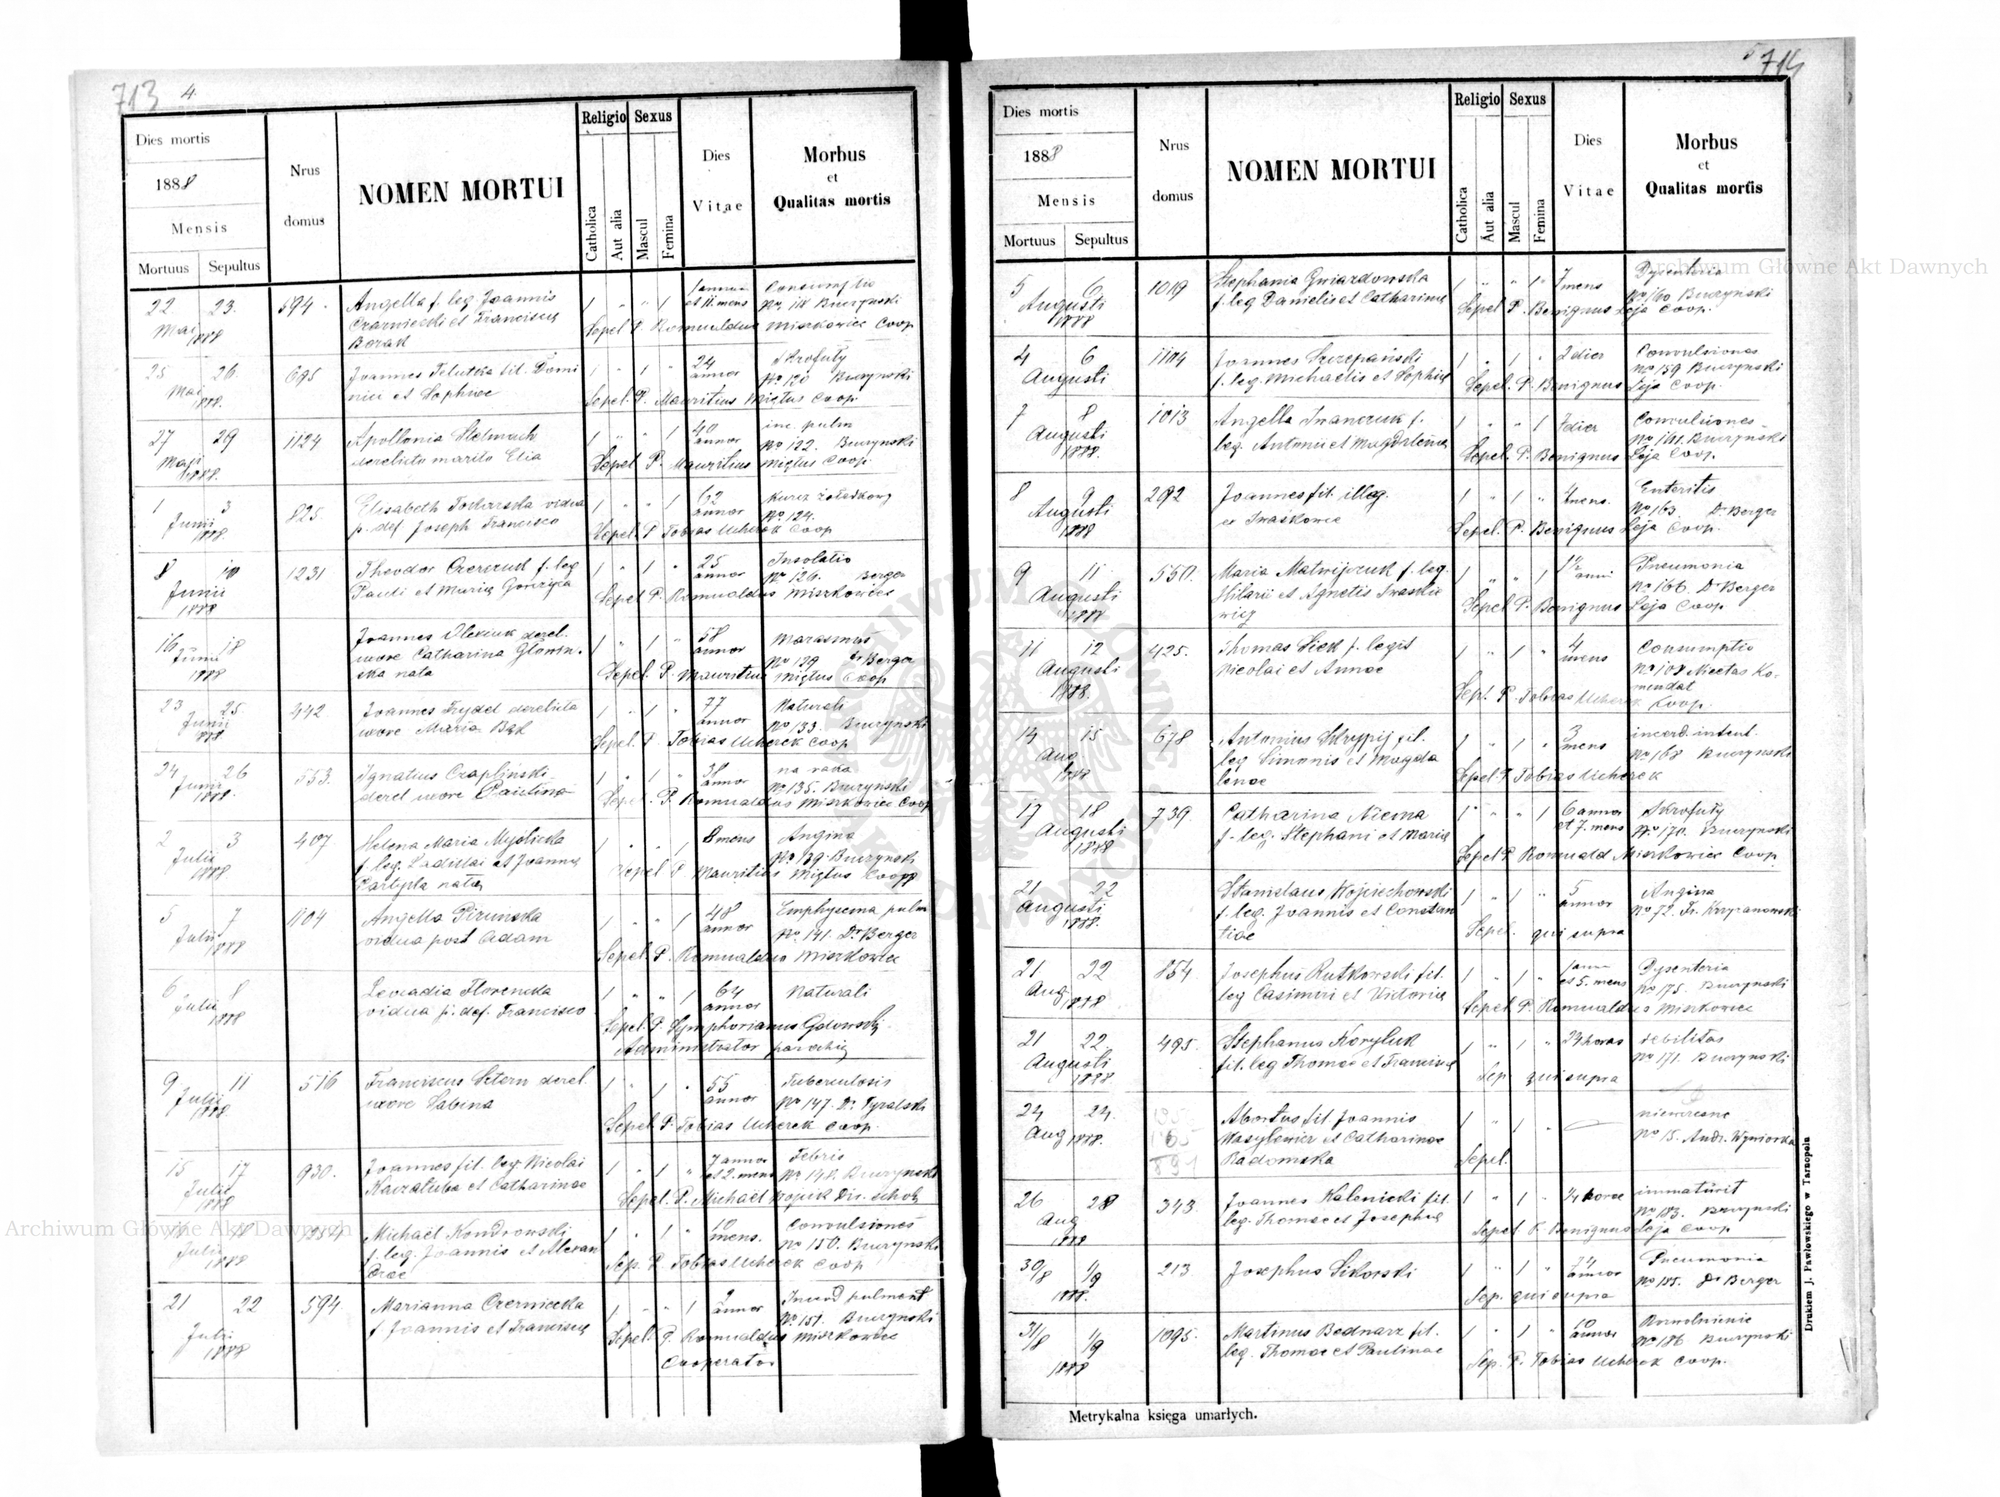 713 4
Dies mortis
1888
Mensis
Mortuus Sepultus
Nrus
domus
NOMEN MORTUI
Religio
Catholica
Aut alia
Sexus
Mascul
Femina
Dies
Vitae
Morbus
et
Qualitas mortis
22 23 594 Angella f. leg. Joannis 1 " " 1 1 annor Consumptio
Mai Czarniecki et Franciscę et 11 mens No 118 Buczynski
1888 Borak Sepel P. Romualdus Miszkowicz Coop
25 26 695 Joannes fil. Domi 1 " 1 " 24 Skrofuły
Mai nici et Sophiae annor No 120 Buczynski
1888. Sepel. P. Mauritius Miętus Coop.
27 29 1124 Apollonia Stelmach 1 " " 1 40 pulm
Maji derelicto marito Elia annor No 122. Buczynski
1888. Sepel P. Mauritius Miętus Coop.
1 3 825 Elisabeth vidua 1 " " 1 62 Kurcz żołądkowy
Junii p. def. Joseph Francisco annor No 124.
1888 Sepel. P Tobias Ucherek Coop
8 10 1231 Theodor f. leg 1 " 1 " 25 Insolatio
Junii Pauli et Marię annor No 126. Berger
1888 Sepel P. Romualdus Miszkowicz
16 18 Joannes Olexiuk derel. 1 " 1 " 58 Marasmus
Junii uxore Catharina annor No 129 Dr Berger
1888 ska nata Sepel. P. Mauritius Miętus Coop
23 25 442 Joannes Frydel derelicta 1 " 1 " 77 Naturali
Junii uxore Maria Bąk annor No 133. Buczynski
1888 Sepel. P. Tobias Ucherek Coop
24 26 553. Ignatius Czapliński 1 " 1 " 38 na raka
Junii derel uxore Paulina annor No 135. Buczynski
1888. Sepel. P. Romualdus Miszkowicz Coop
2 3 407 Helena Maria 1 " " 1 8 mens Angina
Julii f. leg. Ladislai et Joannę No 139 Buczynski
1888 natę Sepel P Mauritius Miętus Coop
5 7 1104 Angella 1 " " 1 48 Emphysema pulm
Julii vidua post Adam annor No. 141. Dr Berger
1888 Sepel. P. Romualdus Miszkowicz
6 8 Leocadia 1 " " 1 64 Naturali
Julii vidua p. def. Francisco annor
1888 Sepel P. Symphorianus
Administrator parochię
9 11 516 Franciscus Stern derel. 1 " 1 " 55 Tuberculosis
Julii uxore Sabina annor No 147. Dr
1888. Sepel. P. Tobias Ucherek Coop.
15 17 930. Joannes fil. leg. Nicolai 1 " 1 " 7 annor Febris
Julii et Catharinae et 2. mens No 148. Buczynski
1888 Sepel. P. Michael Wojcik
18 Michaël Kondrowski 1 " 1 " 10 Convulsiones
Julii f. leg. Joannis et Alexan mens. No 150. Buczynski
1888 drae Sep. P. Tobias Ucherek Coop
21 22 594 Marianna Czerniecka 1 " " 1 9 pulmont
Julii f Joannis et Franciscę annor No. 151. Buczynski
1888 Sepel. P. Romualdus Miszkowicz
Cooperator
5 714
Dies mortis
1888
Mensis
Mortuus Sepultus
Nrus
domus
NOMEN MORTUI
Religio
Catholica
Aut alia
Sexus
Mascul
Femina
Dies
Vitae
Morbus
et
Qualitas mortis
5 6 1019 Stephania Gwiazdowska 1 " " 1 7 Dysenteria
Augusti f. leg Danielis et Catharinę mens No 160 Buczynski
1888 Sepel P. Benignus Leja Coop.
4 6 1104 Joannes Szczepański 1 " 1 " 2 dier Convulsiones
Augusti f. leg. Michaelis et Sophię No 159 Buczynski
Sepel. P. Benignus Leja Coop.
7 8 1013 Angella Iwanczuk f. 1 " " 1 7 dier Convulsiones
Augusti leg. Antonii et Magdalenę No 161. Buczynski
1888. Sepel. P. Benignus Leja Coop.
8 9 292 Joannes fil. illeg. 1 " 1 " 4 mens. Enteritis
Augusti No 163. Dr Berger
1888 Sepel. P. Benignus Leja Coop.
9 11 550. Maria Matwijczuk f. leg. 1 " " 1 1½ anni Pneumonia
Augusti Hilarii et Agnetis No 166. Dr Berger
1888 Sepel P. Benignus Leja Coop
11 12 425. Thomas f. legit 1 " 1 " 4 Consumptio
Augusti Nicolai et Annae mens
1888. Sept. P. Tobias Ucherek Coop.
14 15 678 Antonius Skrypij fil. 1 " 1 " 3 intest.
Aug leg Simonis et Magda mens No 168 Buczynski
1888 lenae Sepel P. Tobias Ucherek
17 18 739. Catharina Niema 1 " " 1 6 annor Skrofuły
Augusti f. leg. Stephani et Marię et 7. mens No. 170. Buczynski
1888 Sepel P. Romuald Miszkowicz Coop
21 22 Stanislaus Wojciechowski 1 " 1 " 5 Angina
Augusti f. leg. Joannis et Constan annor No 72. Fr. Krzyzanowski
1888. tiae Sepel. qui supra
21 22 854. Josephus Rutkowski fil. 1 " 1 " 1 ann Dysenteria
Aug leg Casimiri et Victorię et 5. mens No 175. Buczynski
1888 Sepel P. Romualdus Miszkowicz
21 22 495. Stephanus Koryluk 1 " 1 " 24 horas debilitas
Augusti fil. leg Thomae et Franciscę No 171. Buczynski
1888 Sep. qui supra
24 24. Abortus fil Joannis 1 " 1 "
Aug 1888. Wasylewicz et Catharinae No 15. Andr.
Radomska Sepel.
26 28 343. Joannes Kalenicki fil. 1 " 1 " ¼ horae immaturit
Aug leg. Thomae et Josephę No 183. Buczynski
1888 Sepel P. Benignus Leja Coop
30/8 1/9 213 Josephus Sikorski 1 " 1 " 74 Pneumonia
1888. annor No 185. Dr Berger
Sep. qui supra
31/8 1/9 1095. Martinus Bednarz fil. 1 " 1 " 10
1888 leg. Thomae et Paulinae annor No 186 Buczynski
Sep. P. Tobias Ucherek Coop.
Metrykalna księga umarłych.
Drukiem J. Pawłowskiego w Tarnopolu
Archiwum Główne Akt Dawnych
Archiwum Główne Akt Dawnych